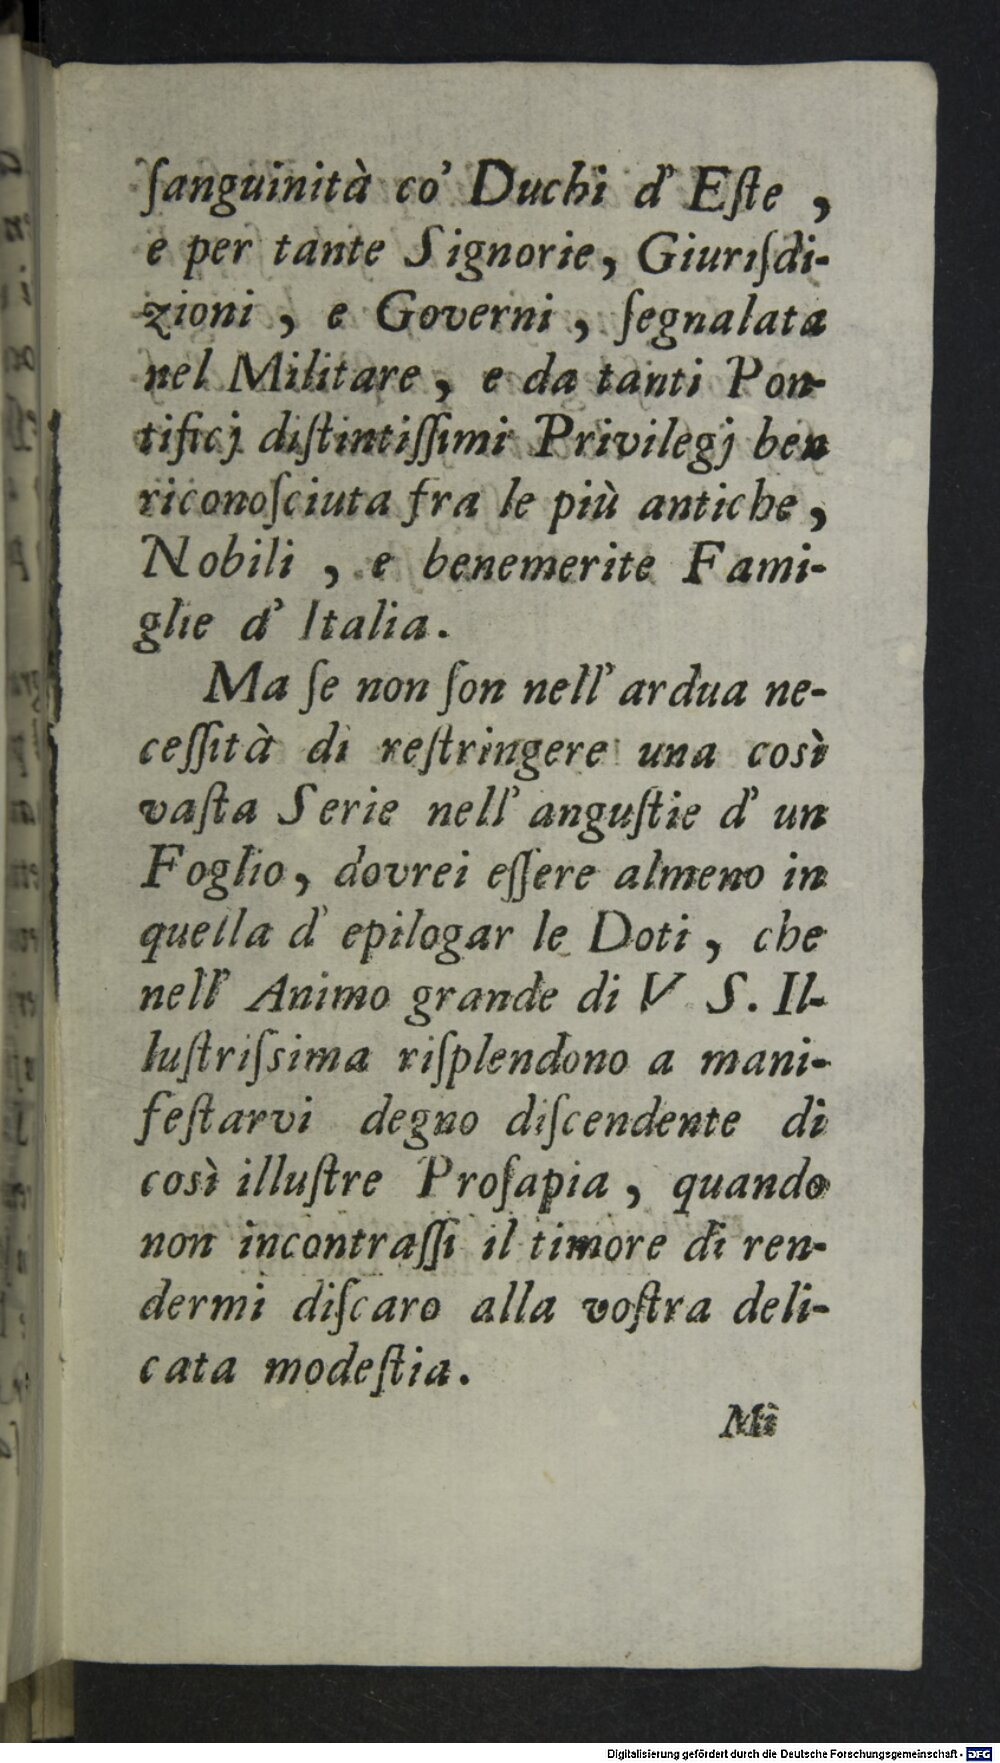 ſanguinità co' Duchi d' Eſte ,
e per tante Signorie, Giuriſdi-
zioni , e Governi , ſegnalata
nel Militare, e da tanti Pon-
tificj diſtintiſſimi Privilegj ben
riconoſciuta fra le più antiche,
Nobili , e benemerite Fami-
glie d' Italia.
Ma ſe non ſon nell' ardua ne-
ceſſità di reſtringere una così
vaſta Serie nell' anguſtie d' un
Foglio, dovrei eſſere almeno in
quella d' epilogar le Doti, che
nell' Animo grande di V S. Il-
luſtriſsima riſplendono a mani-
feſtarvi degno diſcendente di
così illuſtre Proſapia, quando
non incontraſſi il timore di ren-
dermi diſcaro alla voſtra deli-
cata modeſtia.
Mi
Digitalisierung gefördert durch die Deutsche Forschungsgemeinschaft - DFG